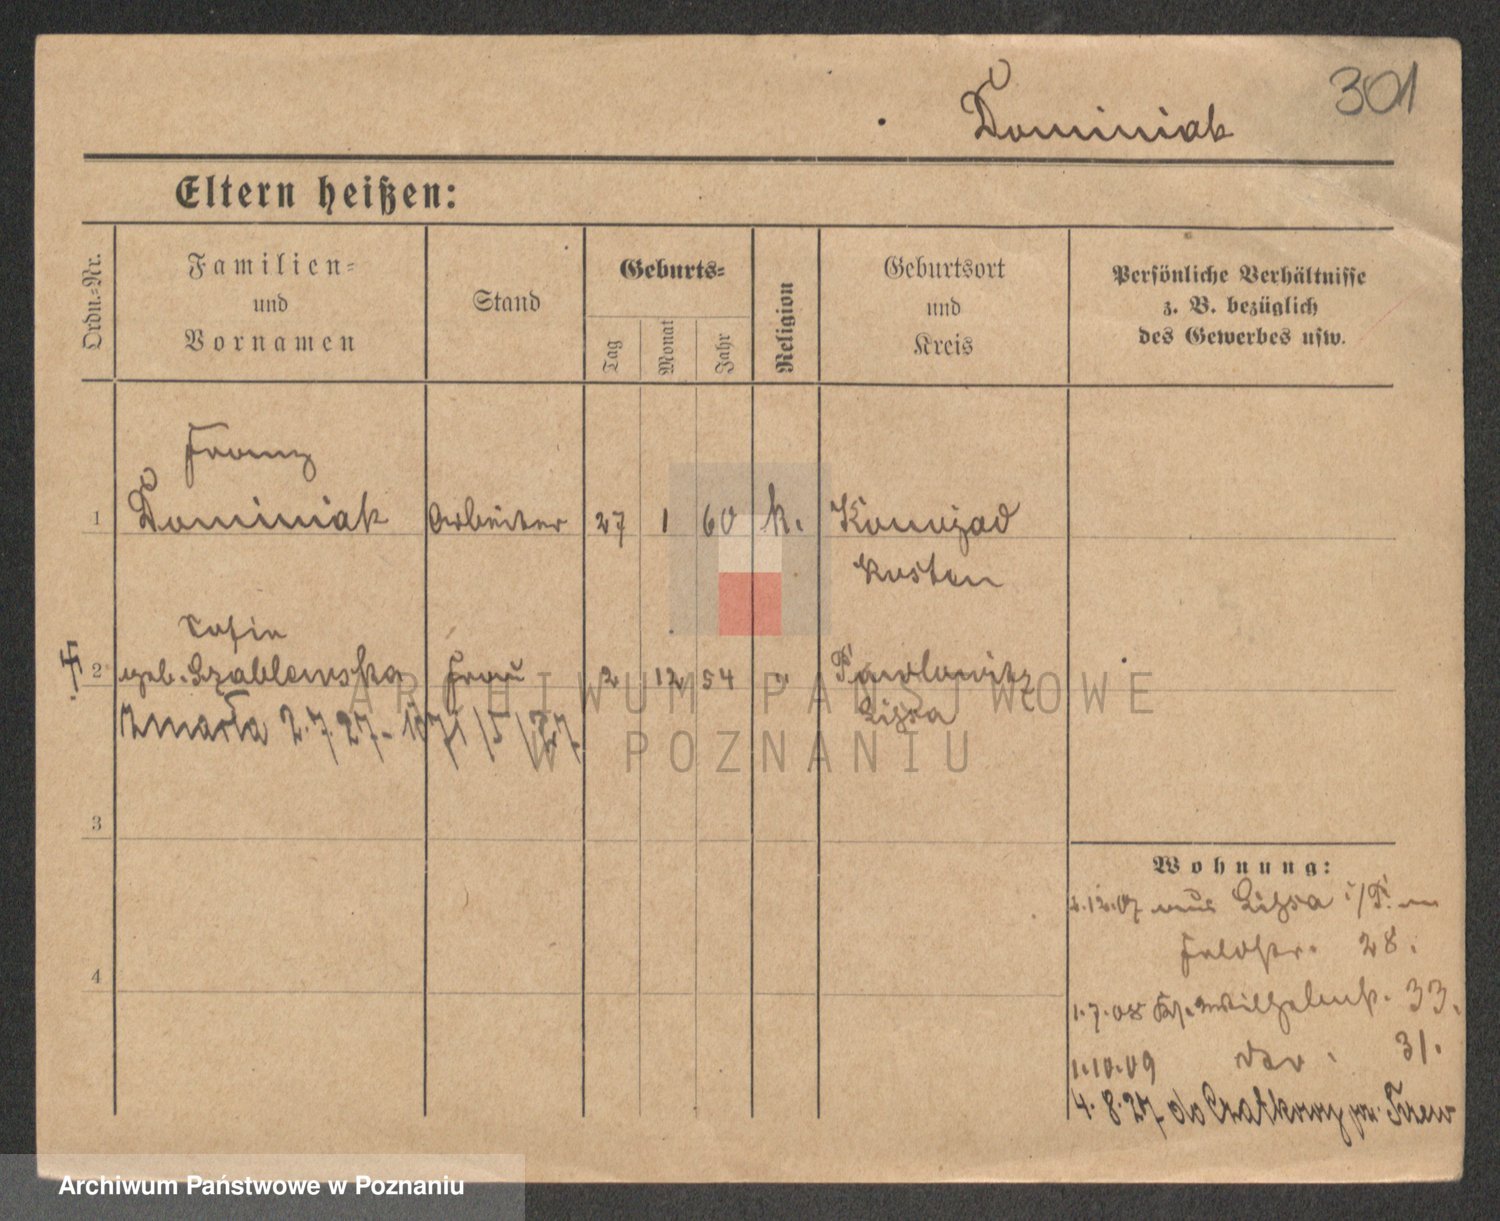 301
Dominiak
Eltern heißen:
Ordn.-Nr.
Familien-
und
Vornamen
Stand
Geburts-
Tag
Monat
Jahr
Religion
Geburtsort
und
Kreis
Persönliche Verhältnisse
z. B. bezüglich
des Gewerbes usw.
Franz
1 Dominiak Arbeiter 27 1 60 k.
Kosten
2 geb. Szablewska Frau 2 12 54 "
Pawlowitz
Lissa
zmarła 2.7.27
3
4
Wohnung:
2.12.07 aus Lissa i/P.
Feldstr. 28.
1.7.08 Wilhelmstr. 33.
1.10.09 31.
4.8.27 do
ARCHIWUM PAŃSTWOWE
W POZNANIU
Archiwum Państwowe w Poznaniu